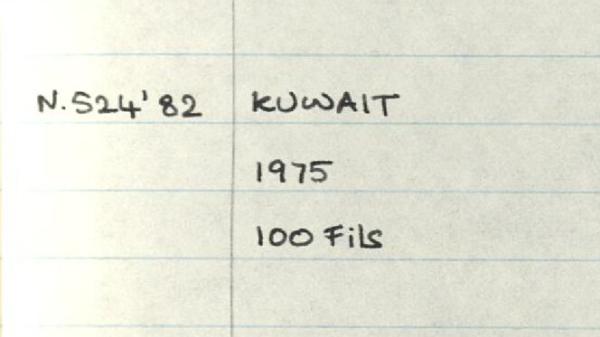 N.524'82 KUWAIT
1975
100 Fils